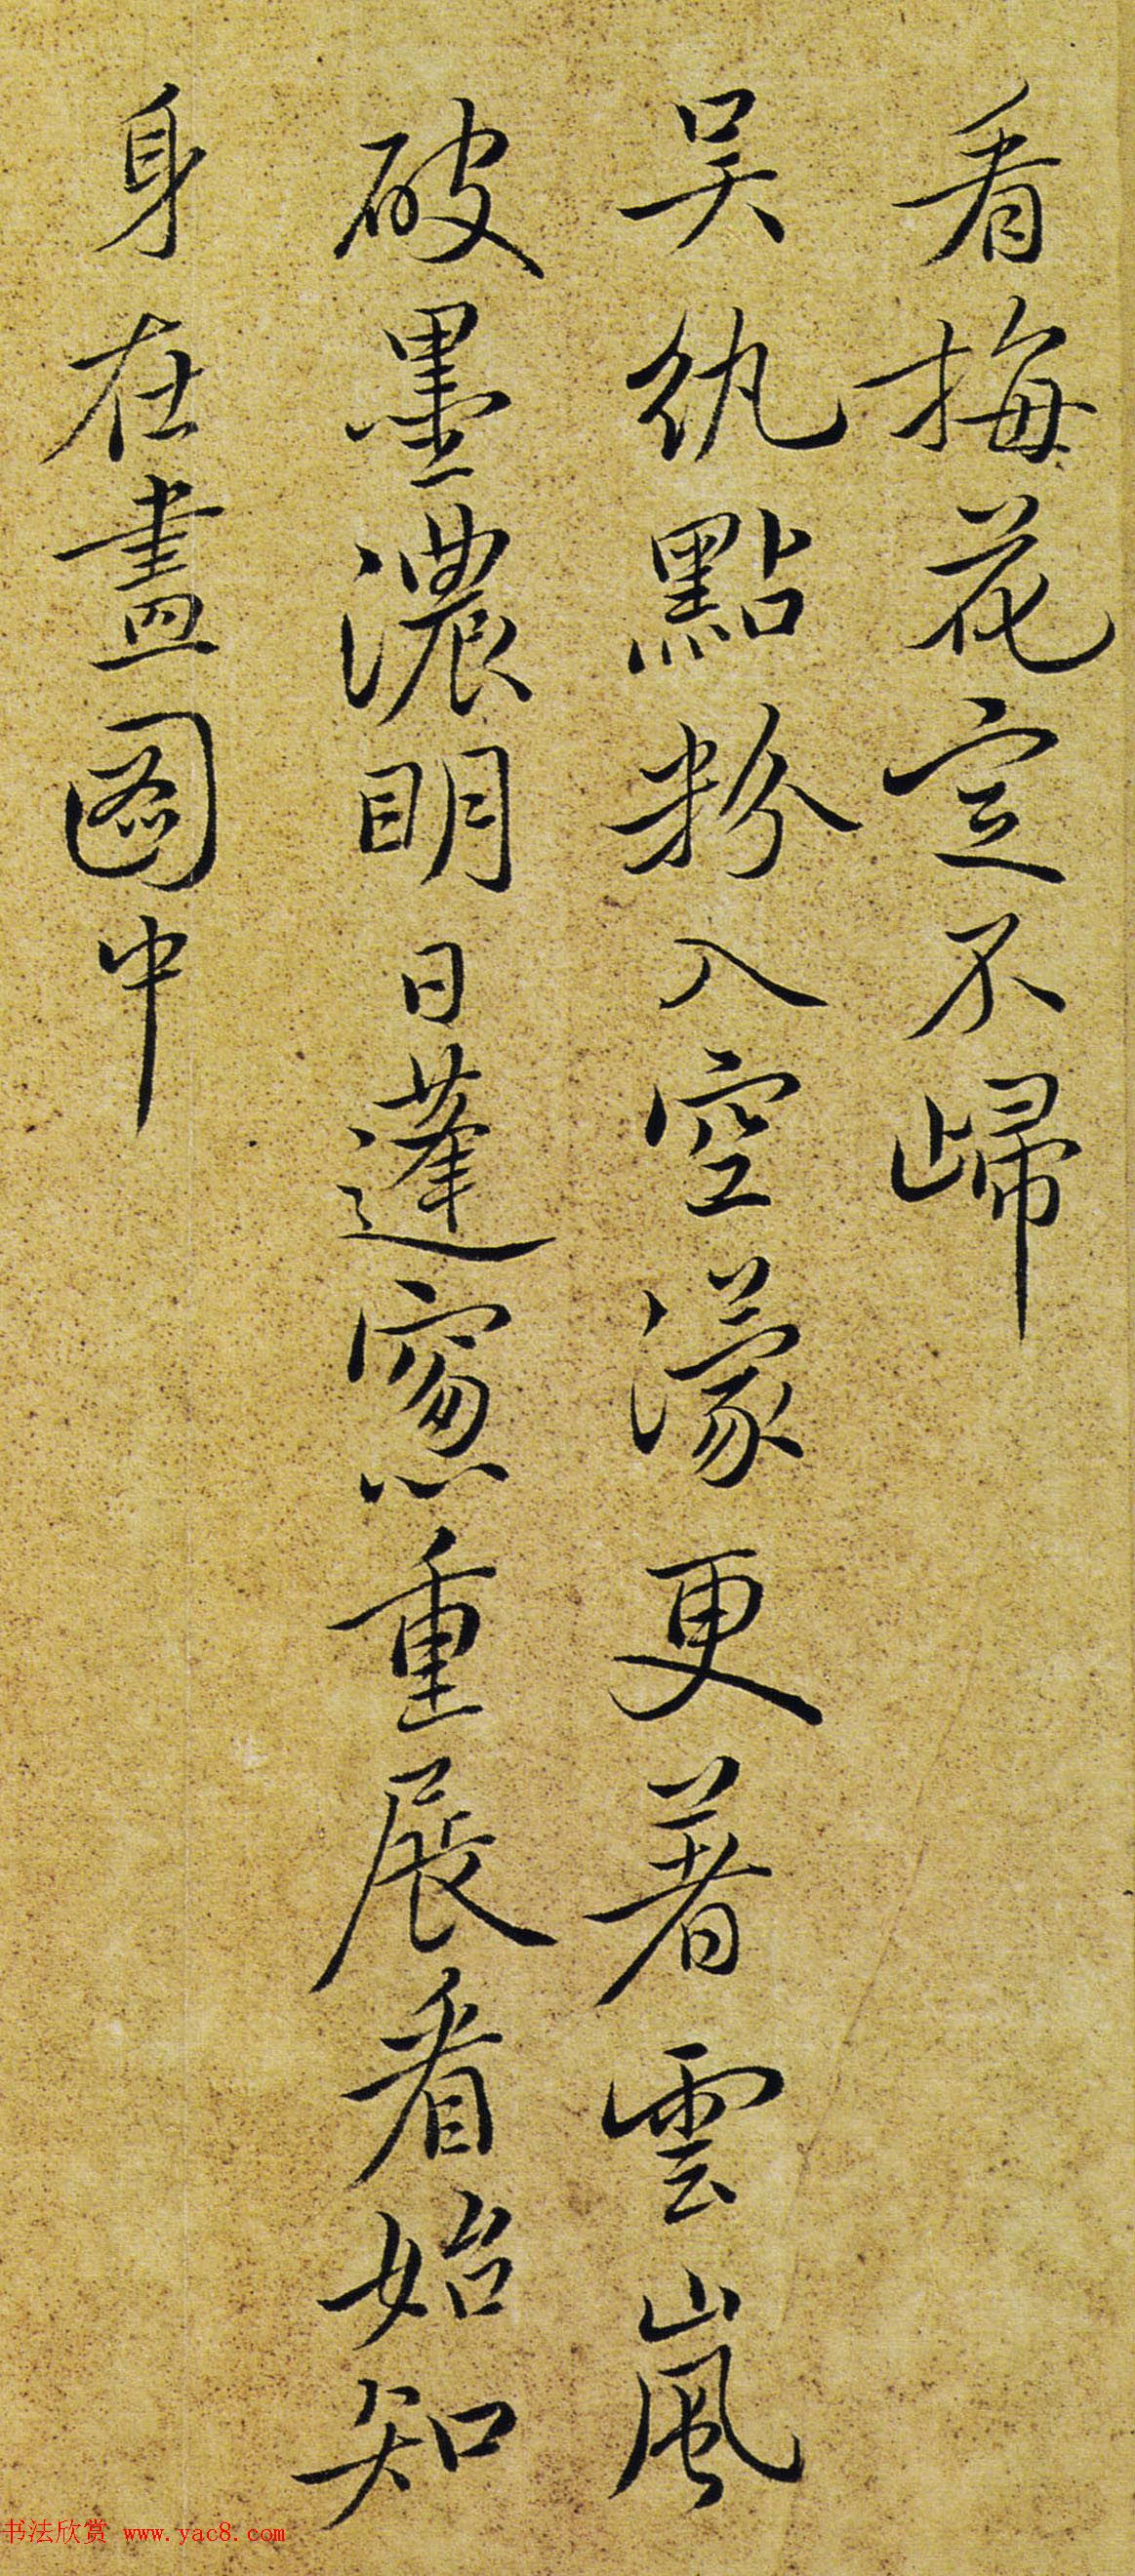 看梅花定不歸
吴紈點粉入空濛更著雲嵐
破墨濃明日蓬窻重展看始知
身在畫圖中
书法欣赏 www.yac8.com